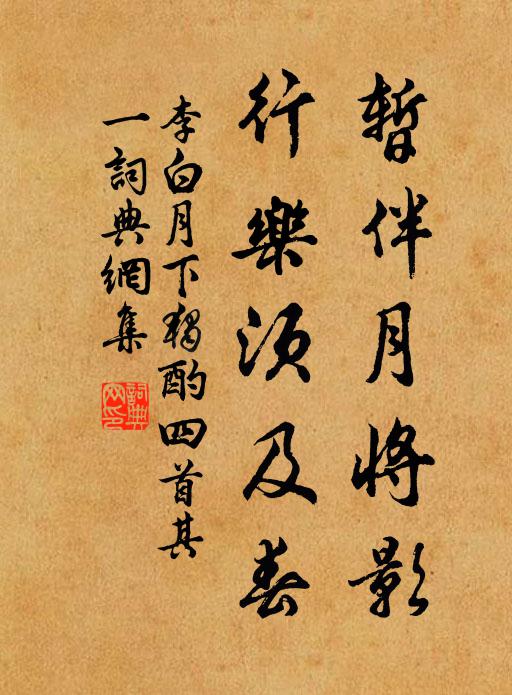 暫伴月將影
行樂須及春
李白月下獨酌四首其
一詞典網集
詞典
网印